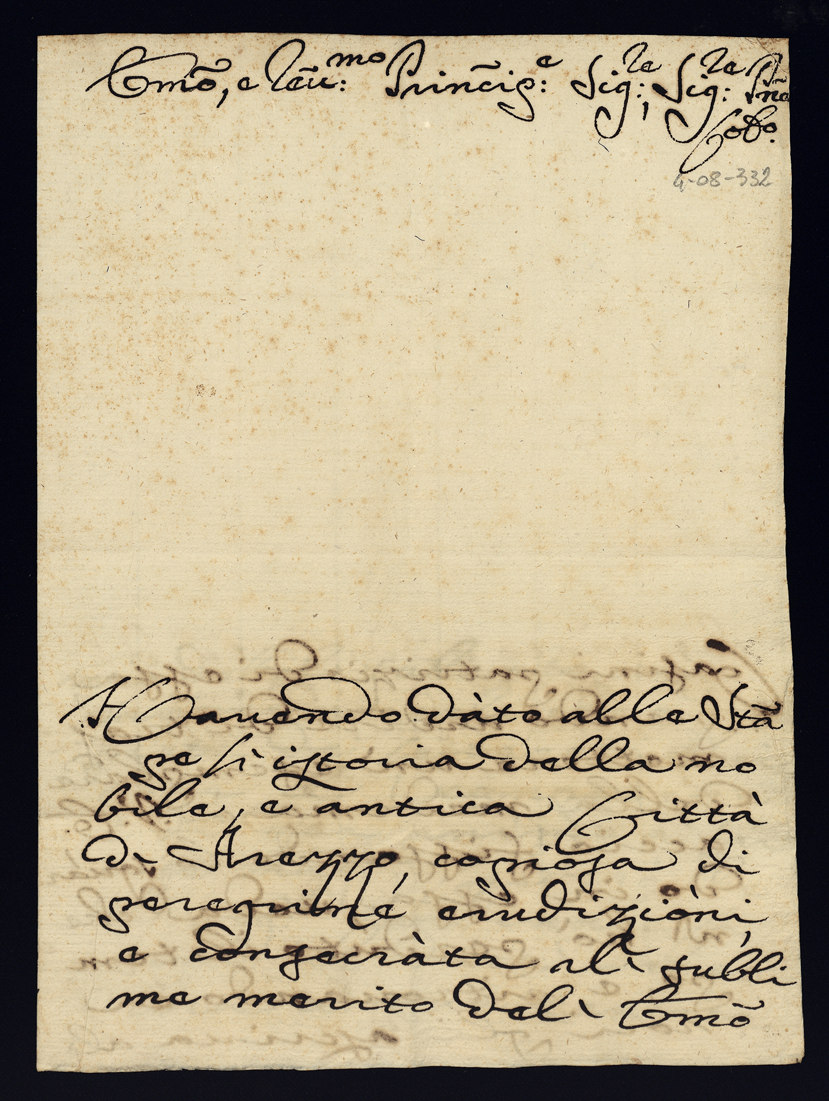 Emõ, e Reũ:mo Princĩp:e Sig:re, Sig:re Prñe
Colo.
4-08-332
Hauendo dàto alle Stã
pe l'istoria della no
bile, e antica Città
di Arezzo, copiosa di
peregrine erudizióni,
e consecràta al' subli
me merito del' Emõ